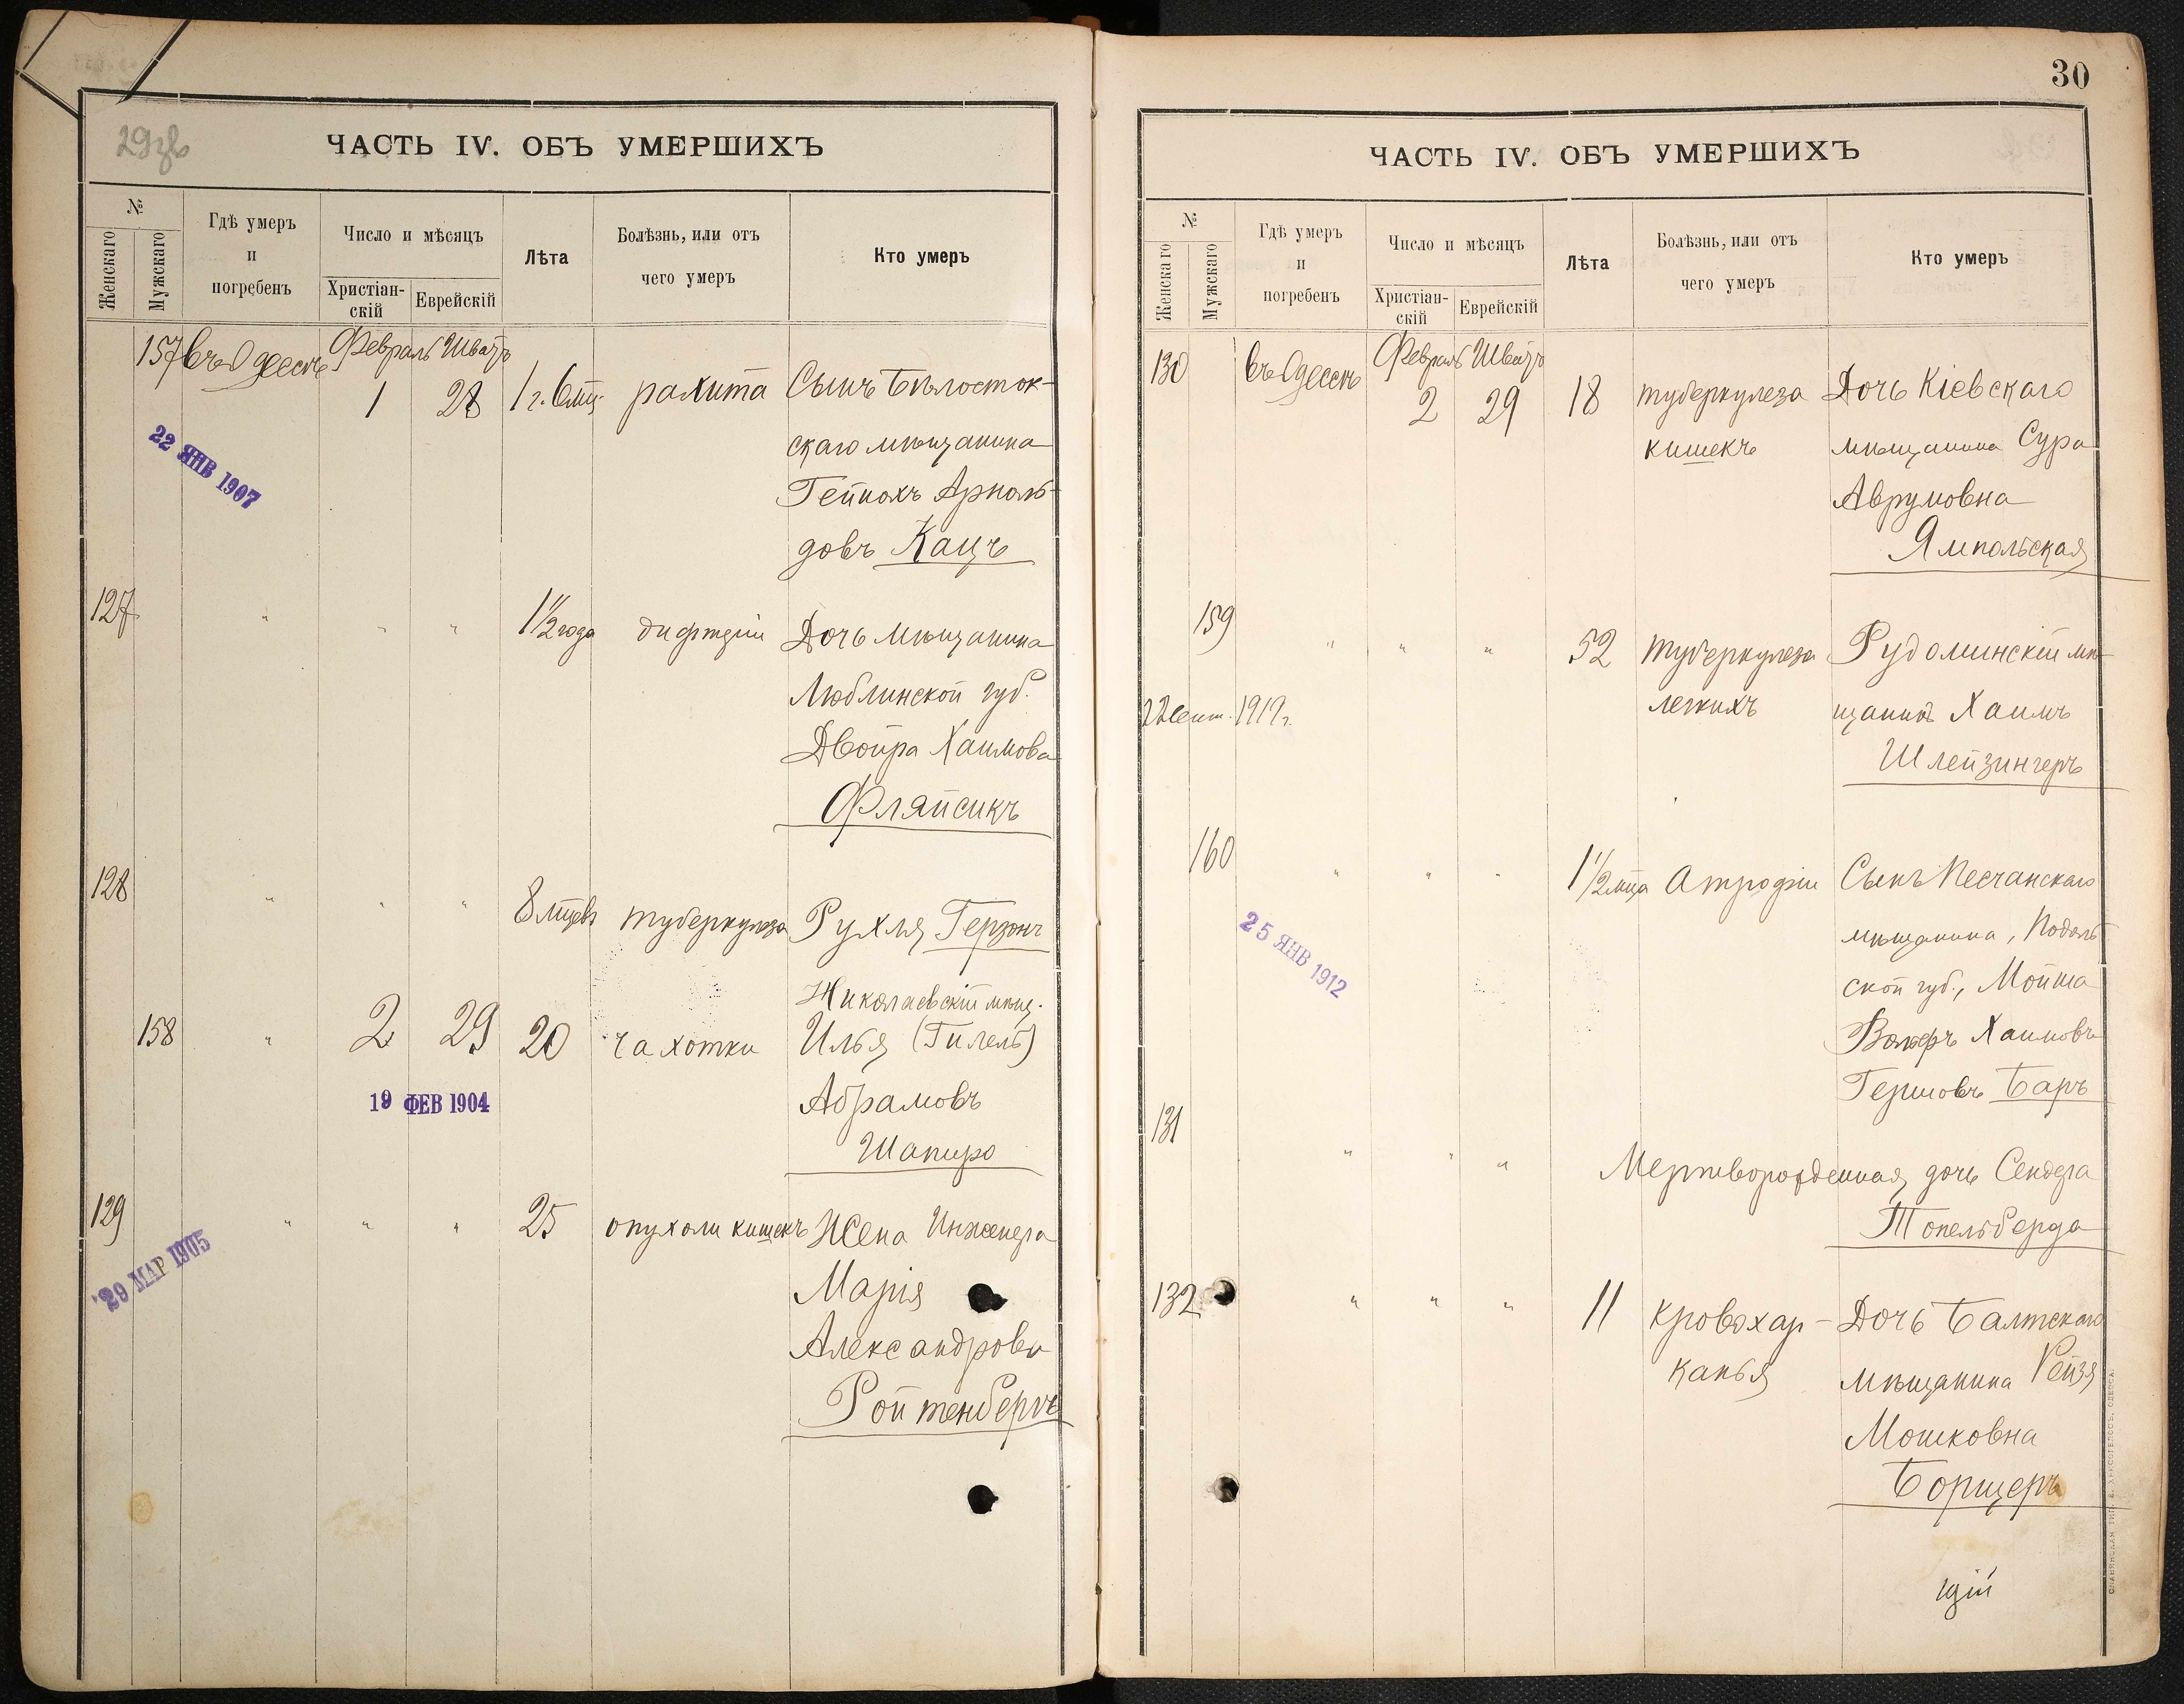 29 зв
ЧАСТЬ IV. ОБЪ УМЕРШИХЪ
№
Женскаго
Мужскаго
Гдѣ умеръ
и
погребенъ
Число и мѣсяцъ
Христіан-
скій
Еврейскій
Лѣта
Болѣзнь, или отъ
чего умеръ
Кто умеръ
157 въ Одессѣ Февраль Шватъ
1 28 1 г. 6 мц. рахита Сынъ Бѣлосток-
скаго мѣщанина
Гейнохъ Арноль-
довъ Кацъ
22 ЯНВ 1907
127 " " " 1 1/2 года дифтеріи Дочь мѣщанина
Люблинской губ.
Двойра Хаимова
Фляйсикъ
128 " " " 8 мцевъ туберкулеза Рухля Герзонъ
Николаевскій мѣщ.
158 " 2 29 20 чахотки Илья (Гилель)
Абрамовъ
Шапиро
19 ФЕВ 1904
129 " " " 25 опухоли кишекъ Жена Инженера
Марія
Александрова
Ройтенбергъ
29 МАР 1905
30
ЧАСТЬ IV. ОБЪ УМЕРШИХЪ
№
Женскаго
Мужскаго
Гдѣ умеръ
и
погребенъ
Число и мѣсяцъ
Христіан-
скій
Еврейскій
Лѣта
Болѣзнь, или отъ
чего умеръ
Кто умеръ
130 въ Одессѣ Февраль Шватъ
2 29 18 туберкулеза Дочь Кіевскаго
кишекъ мѣщанина Сура
Аврумовна
Ямпольская
159 " " " 52 туберкулеза Рудоминскій мѣ-
легкихъ щанинъ Хаимъ
Шлейзингеръ
22 Сент. 1919 г.
160 " " " 1 1/2 мца Атрофіи Сынъ Песчанскаго
мѣщанина, Подоль-
ской губ., Мойша
Вольфъ Хаимовъ
Гершовъ Баръ
25 ЯНВ 1912
131 " " " Мертворожденная дочь Сендера
Топельберга
132 " " " 11 кровохар- Дочь Балтскаго
канья мѣщанина Рейзя
Мошковна
Борщеръ
щій